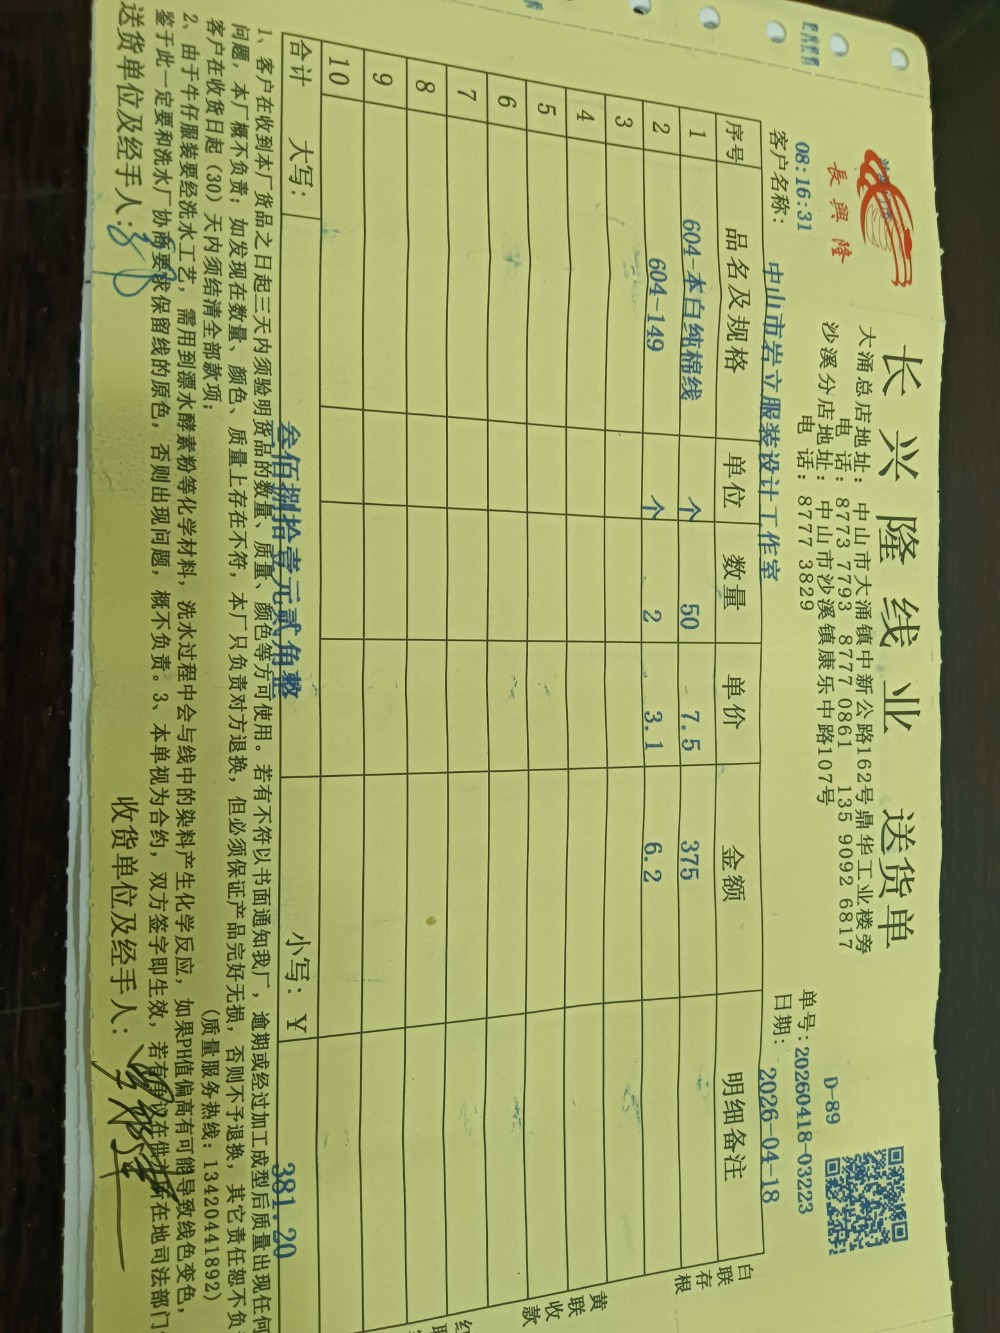 長興隆
长兴隆线业 送货单
大涌总店地址：中山市大涌镇中新公路162号鼎华工业楼旁
电 话：8773 7793 8777 0861 135 9092 6817
沙溪分店地址：中山市沙溪镇康乐中路107号
电 话：8777 3829
D-89
08:16:31
单号：20260418-03223
客户名称：中山市岩立服装设计工作室
日期：2026-04-18
序号 品名及规格 单位 数量 单价 金额 明细备注
1 604-本白纯棉线 个 50 7.5 375
2 604-149 个 2 3.1 6.2
3
4
5
6
7
8
9
10
合计 大写：叁佰捌拾壹元贰角整 小写：￥ 381.20
白联存根
黄联收款
红
1、客户在收到本厂货品之日起三天内须验明货品的数量、质量、颜色等方可使用。若有不符以书面通知我厂，逾期或经过加工成型后质量出现任何
问题，本厂概不负责；如发现在数量、颜色、质量上存在不符，本厂只负责对方退换，但必须保证产品完好无损，否则不予退换，其它责任恕不负
客户在收货日起（30）天内须结清全部款项；
（质量服务热线：13420441892）
2、由于牛仔服装要经洗水工艺，需用到漂水酵素粉等化学材料，洗水过程中会与线中的染料产生化学反应，如果PH值偏高有可能导致线色变色，
鉴于此一定要和洗水厂协商要求保留线的原色，否则出现问题，概不负责。3、本单视为合约，双方签字即生效，若有争议在供方所在地司法部门
送货单位及经手人：
收货单位及经手人：